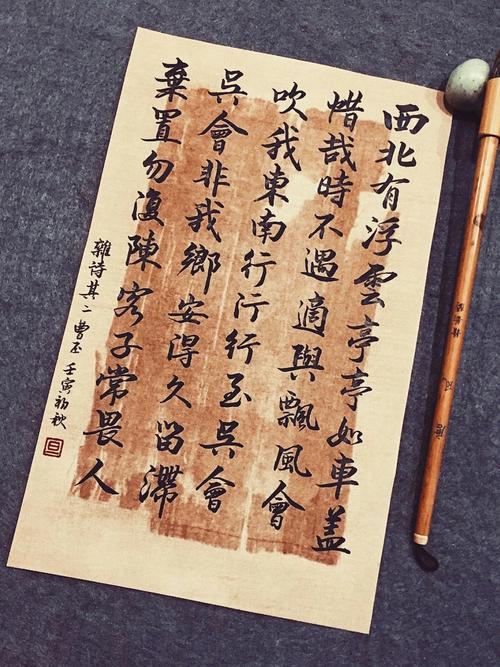 西北有浮雲亭亭如車蓋
惜哉時不遇適與飄風會
吹我東南行行行至吳會
吳會非我鄉安得久留滯
棄置勿復陳客子常畏人
雜詩其二 曹丕 壬寅初秋